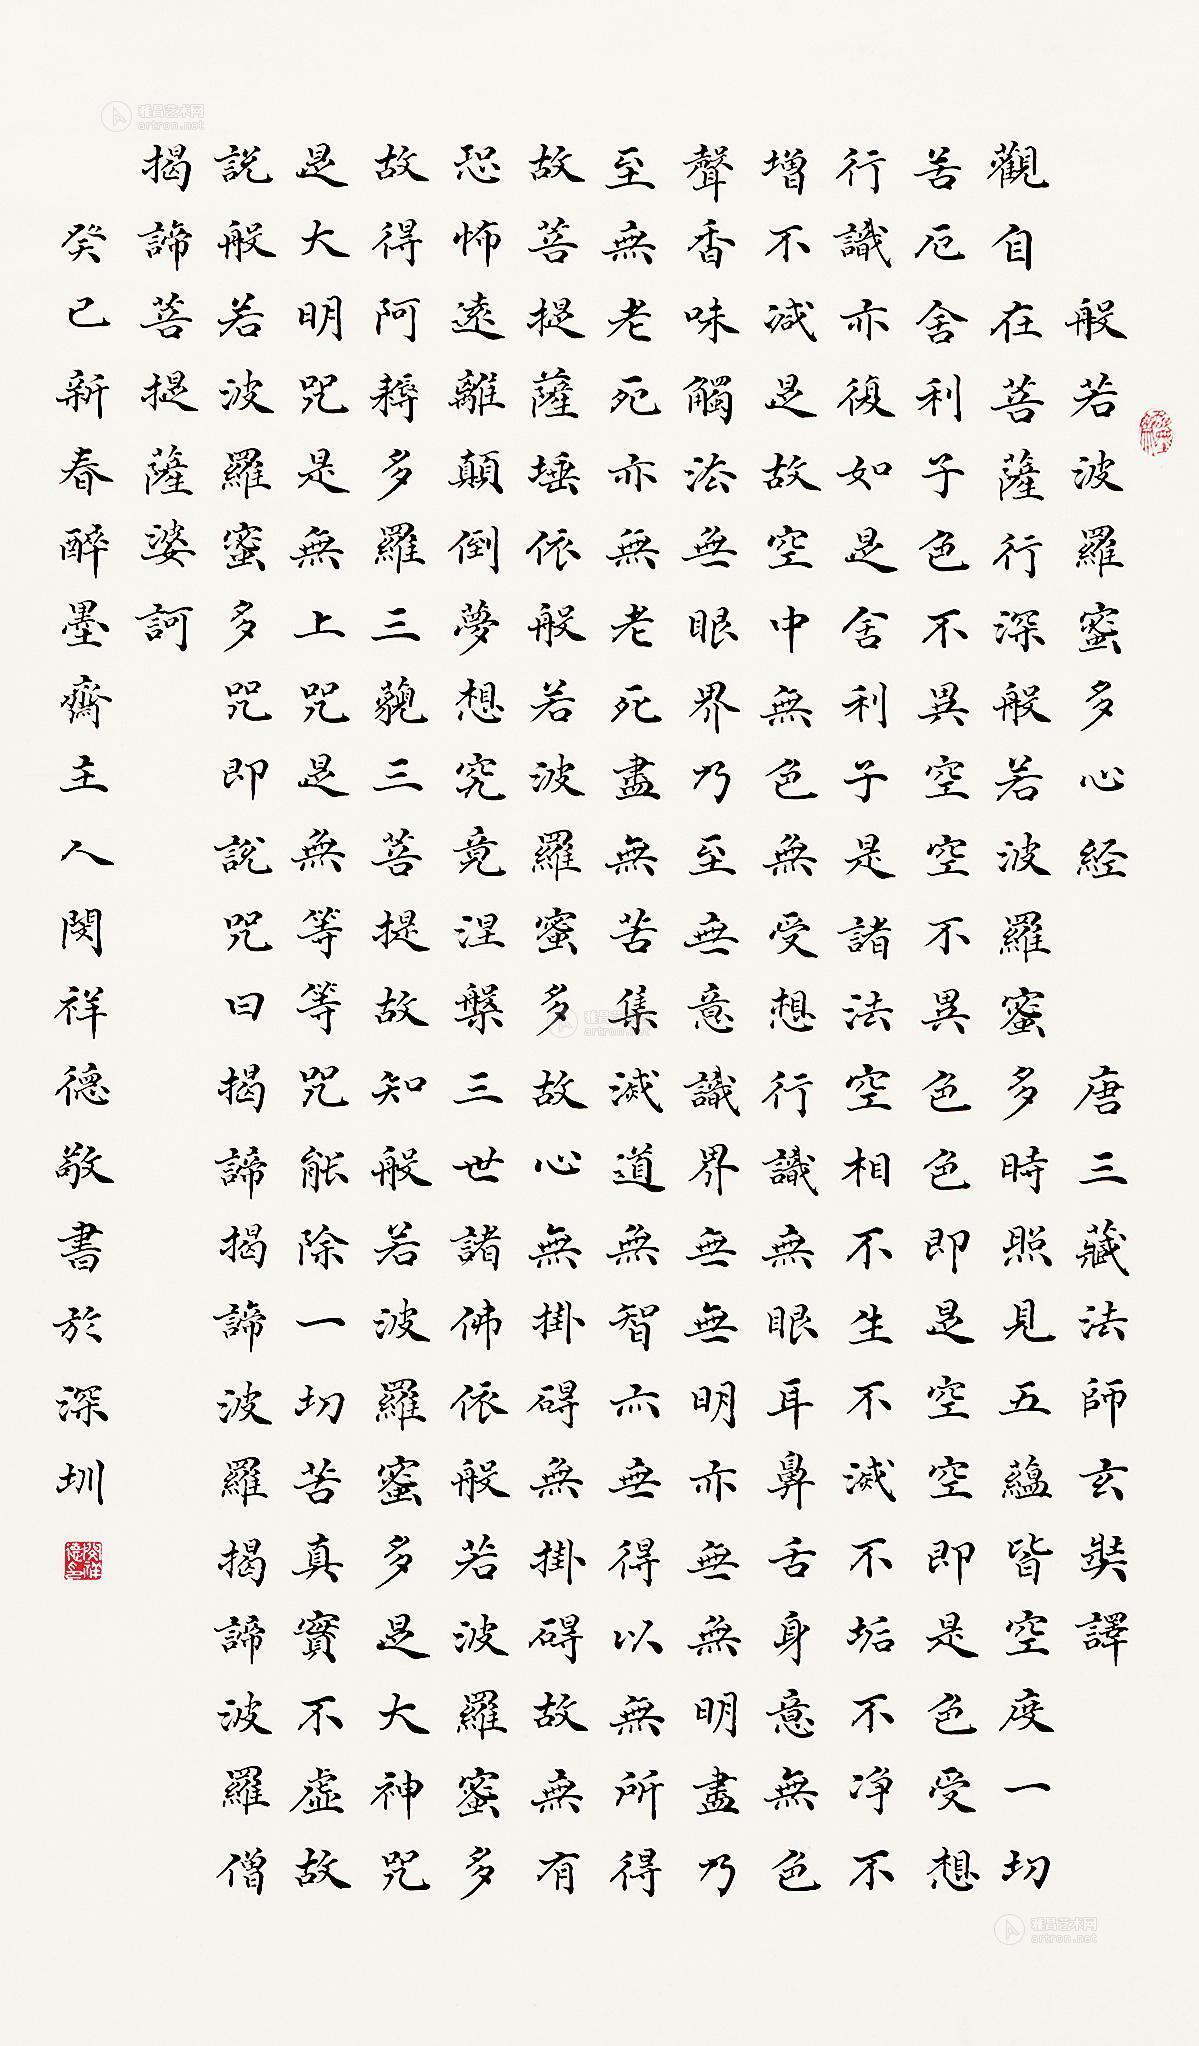 般若波羅蜜多心经 唐三藏法師玄奘譯
觀自在菩薩行深般若波羅蜜多時照見五蘊皆空度一切
苦厄舍利子色不異空空不異色色即是空空即是色受想
行識亦復如是舍利子是諸法空相不生不滅不垢不净不
增不減是故空中無色無受想行識無眼耳鼻舌身意無色
聲香味觸法無眼界乃至無意識界無無明亦無無明盡乃
至無老死亦無老死盡無苦集滅道無智亦無得以無所得
故菩提薩埵依般若波羅蜜多故心無掛碍無掛碍故無有
恐怖遠離顛倒夢想究竟涅槃三世諸佛依般若波羅蜜多
故得阿耨多羅三藐三菩提故知般若波羅蜜多是大神咒
是大明咒是無上咒是無等等咒能除一切苦真實不虛故
說般若波羅蜜多咒即說咒曰揭諦揭諦波羅揭諦波羅僧
揭諦菩提薩婆訶
癸巳新春醉墨齋主人閔祥德敬書於深圳
雅昌艺术网
artron.net
雅昌艺术网
artron.net
雅昌艺术网
artron.net